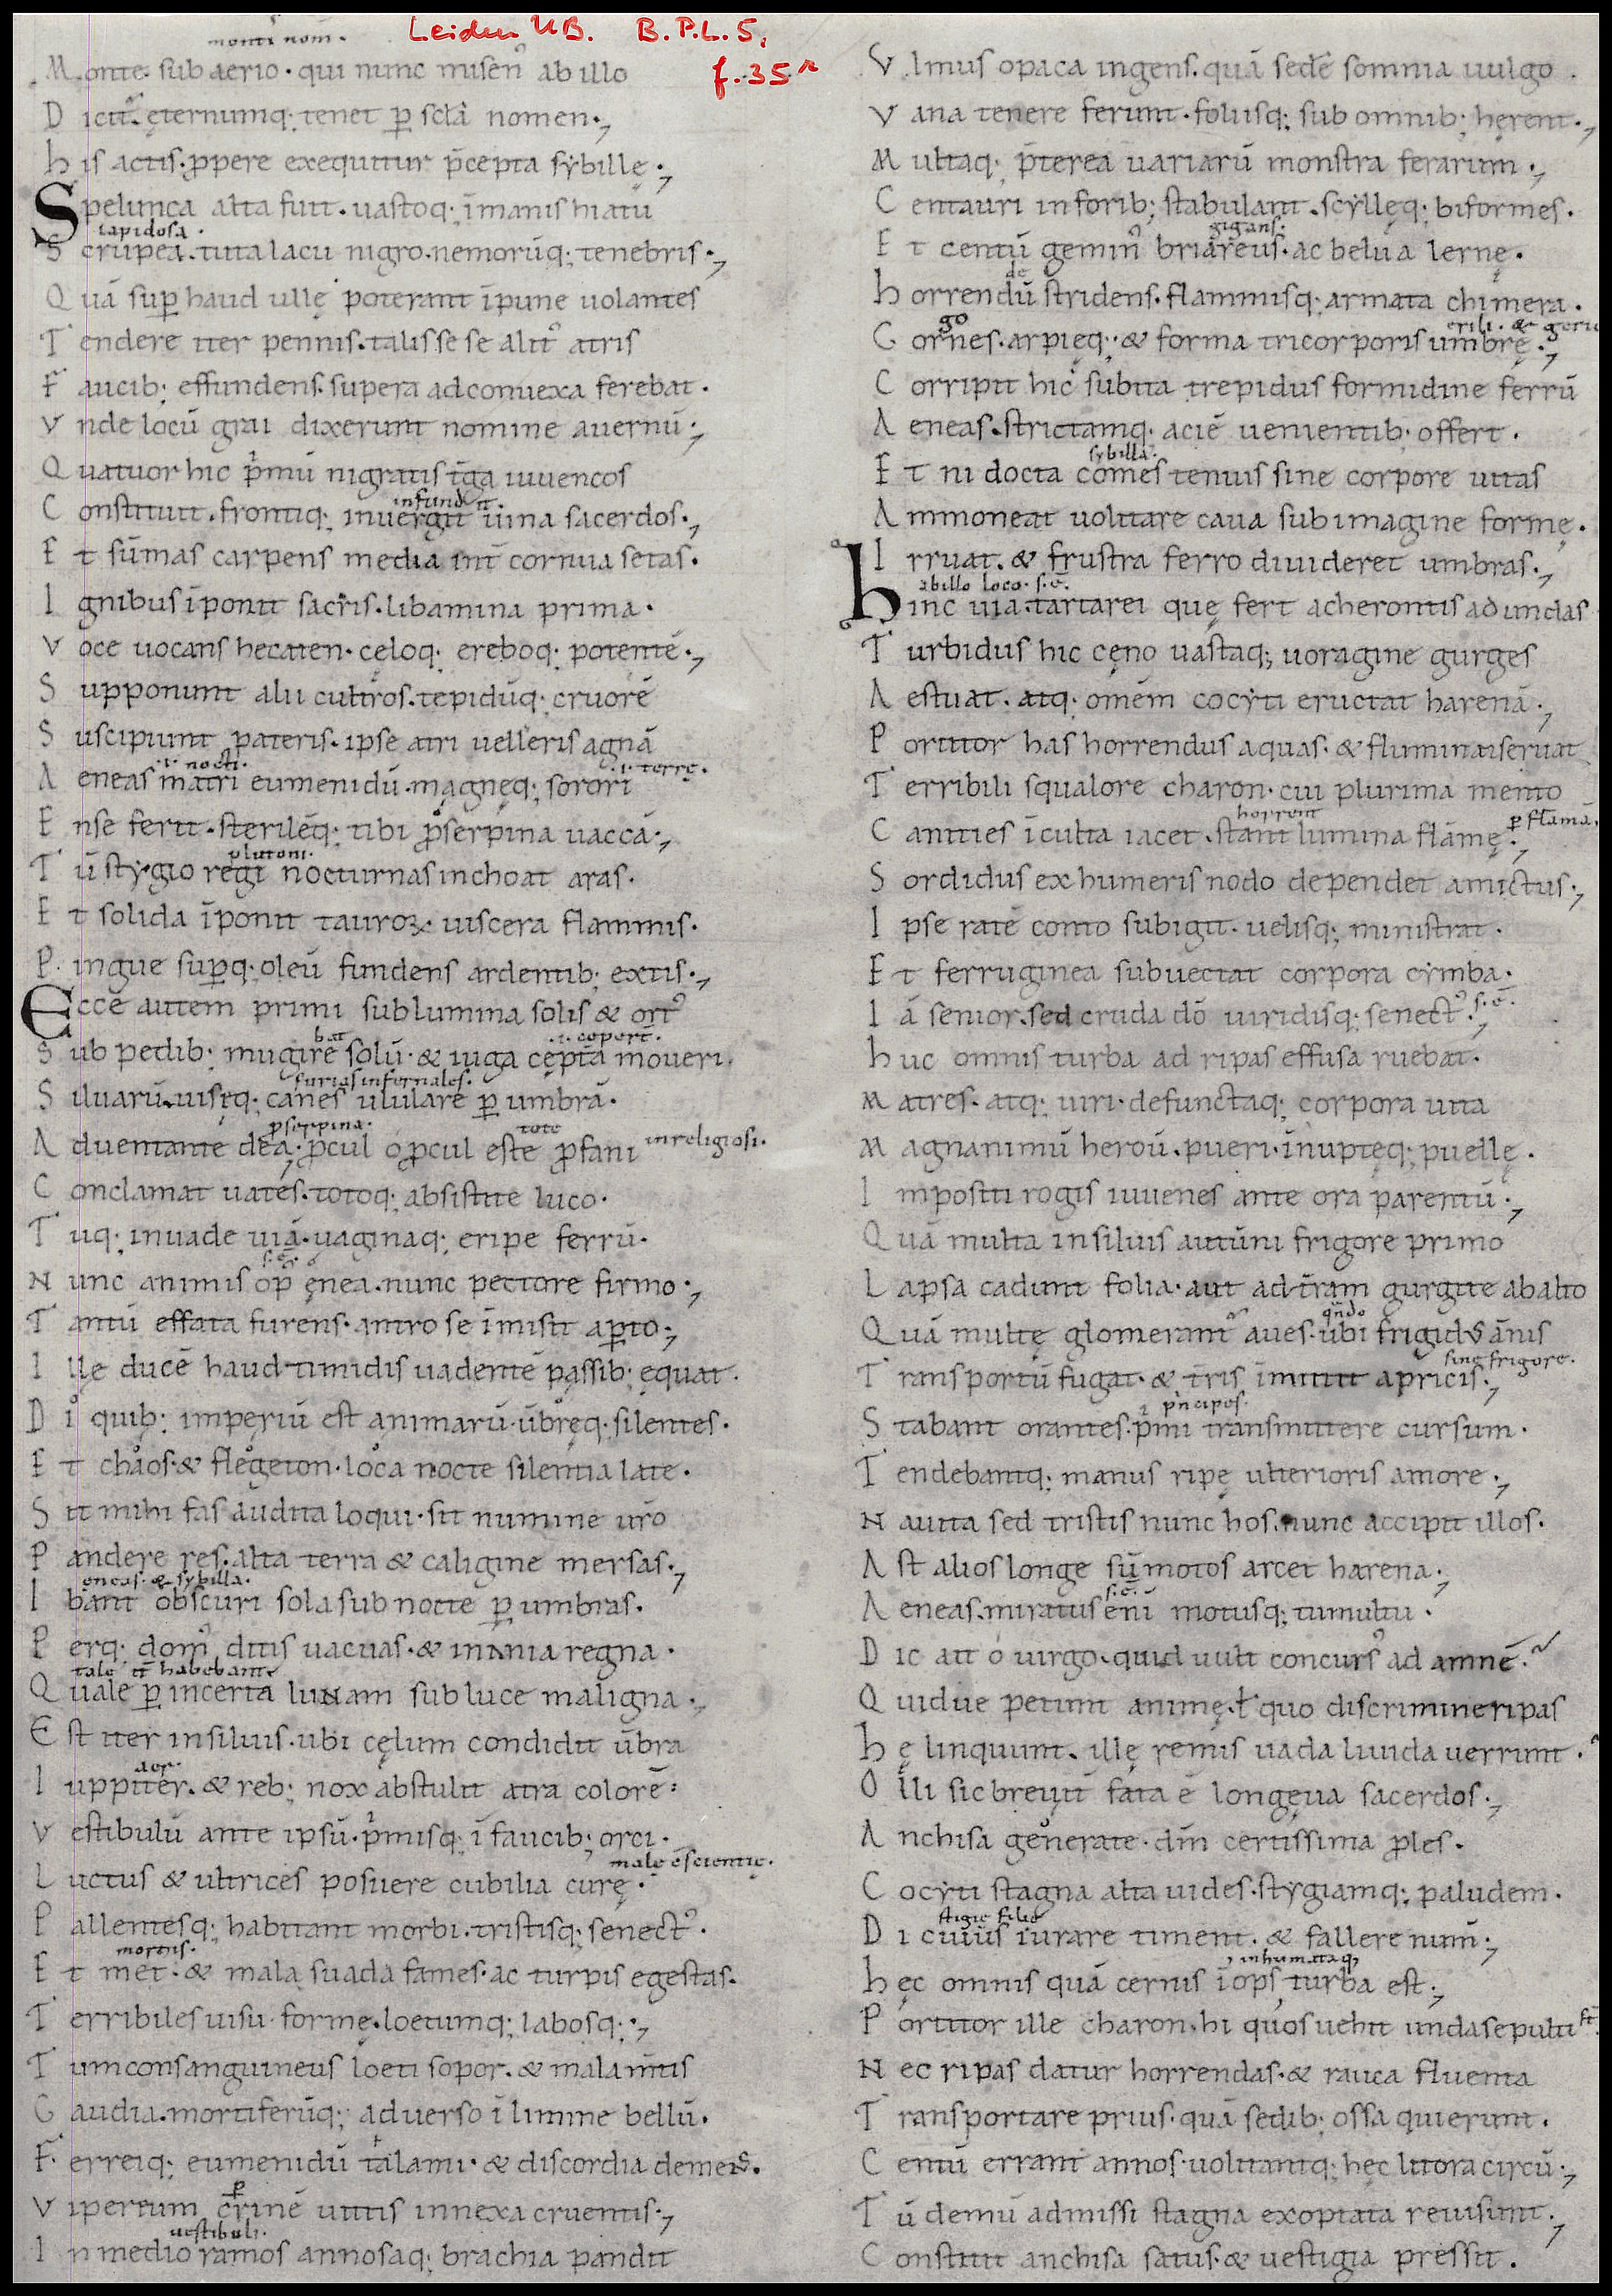 Leiden UB. B.P.L. 5,
f. 35r
monti nom̄.
Monte sub aerio. qui nunc misen᾿ ab illo
Dicit᾿. ęternumq; tenet p̱ scl̄a nomen.,
his actis. ꝓpere exequitur p̄cepta sybillę.,
Spelunca alta fuit. uastoq; īmanis hiatu
lapidosa.
Scrupea. tuta lacu nigro. nemorūq; tenebris.,
Quā sup̱ haud ullę poterant īpune uolantes
Tendere iter pennis. talis se se alit᾿ atris
Faucib; effundens. supera ad conuexa ferebat.
Vnde locū grai dixerunt nomine auernū.,
Quatuor hic pͥmū nigrantis t̄ga iuuencos
infundit.
Constituit. frontiq; inuergit uina sacerdos.,
Et sūmas carpens media int̄ cornua setas.
Ignibus īponit sacris. libamina prima.
Voce uocans hecaten. cęloq; ereboq; potentē.,
Supponunt alii cultros. tepidūq; cruorē
Suscipiunt pateris. ipse atri uelleris agnā
.i. nocti. .i. terrę.
Aeneas matri eumenidū. magnęq; sorori
Ense ferit. sterilēq; tibi ꝓserpina uaccā.,
plutoni.
Tū stygio regi nocturnas inchoat aras.
Et solida īponit tauroꝝ uiscera flammis.
Pingue sup̱q; oleū fundens ardentib; extis.,
Ecce autem primi sub lumina solis & ort᾿
bat .i. coper̄t.
Sub pedib; mugire solū. & iuga cępta moueri.
furias infernales.
Siluarū. uisęq; canes ululare p̱ umbrā.
ꝓserpina. tote
Aduentante dea. ꝓcul o ꝓcul este ꝓfani inreligiosi.
Conclamat uates. totoq; absistite luco.
Tuq; inuade uiā. uaginaq; eripe ferrū.
s. ē.
Nunc animis op᾿ ęnea. nunc pectore firmo.,
Tantū effata furens. antro se īmisit ap̱to.,
Ille ducē haud timidis uadentē passib; ęquat.
Di quib; imperiū est animarū. ūbręq; silentes.
Et chaos. & flegeton. loca nocte silentia late.
Sit mihi fas audita loqui. sit numine ur̄o
Pandere res. alta terra & caligine mersas.,
eneas. & sybilla.
Ibant obscuri sola sub nocte p̱ umbras.
Perq; dom᾿ ditis uacuas. & inania regna.
tale it̄ habebant
Quale p̱ incerta luNam sub luce maligna.,
Est iter in siluis. ubi cęlum condidit ūbra
aer.
Iuppiter. & reb; nox abstulit atra colorē:
Vestibulū ante ipsū. pͥmisq; ī faucib; orci.
male c̄scientię.
Luctus & ultrices posuere cubilia curę.
Pallentesq; habitant morbi. tristisq; senect᾿.
mortis.
Et met᾿. & mala suada fames. ac turpis egestas.
Terribiles uisu formę. loetumq; labosq;.,
Tum consanguineus loeti sopor. & mala m̄tis
Gaudia. mortiferūq; aduerso ī limine bellū.
Ferreiq; eumenidū talami. & discordia demens̄.
p̱
Vipereum crinē uittis innexa cruentis.,
uestibuli.
In medio ramos annosaq; brachia pandit
Vlmus opaca ingens. quā sedē somnia uulgo.
Vana tenere ferunt. foliisq; sub omnib; hęrent.,
Multaq; p̄terea uariarū monstra ferarum.,
Centauri in forib; stabulant. scyllęq; biformes.
gigans.
Et centū gemin᾿ briareus. ac belua lernę.
de
horrendū stridens. flammisq; armata chimera.
go erili. & geri
Gornes. arpięq; & forma tricorporis umbrę.,
Corripit hic subita trepidus formidine ferrū
Aeneas. strictamq; aciē uenientib; offert.
sybilla.
Et ni docta comes tenuis sine corpore uitas
Ammoneat uolitare caua sub imagine formę.
Irruat. & frustra ferro diuideret umbras.,
ab illo loco. s. ē.
hinc uia. tartarei quę fert acherontis ad undas
Turbidus hic cęno uastaq; uoragine gurges
Aestuat. atq; omēm cocyti eructat harenā.,
Portitor has horrendus aquas. & flumina seruat
Terribili squalore charon. cui plurima mento
horrent p̱ flāmā.
Canities īculta iacet. stant lumina flāmę.,
Sordidus ex humeris nodo dependet amictus.,
Ipse ratē conto subigit. uelisq; ministrat.
Et ferruginea subuectat corpora cymba.
Iā senior. sed cruda dō uiridisq; senect᾿. s. ē.
huc omnis turba ad ripas effusa ruebat.
Matres. atq; uiri. defunctaq; corpora uita
Magnanimū heroū. pueri. inuptęq; puellę.
Impositi rogis iuuenes ante ora parentū.,
Quā multa in siluis autūni frigore primo
Lapsa cadunt folia. aut ad t̄ram gurgite ab alto
qn̄do
Quā multę glomerant᾿ aues. ubi frigidus ānis
sine frigore.
Trans portū fugat. & t̄ris īmittit apricis.,
pͥncipes.
Stabant orantes. pͥmi transmittere cursum.
Tendebantq; manus ripę ulterioris amore.,
Nauita sed tristis nunc hos. nunc accipit illos.
Ast alios longe sūmotos arcet harena.,
s. ē.
Aeneas. miratus eni᾿ motusq; tumultu.
Dic ait o uirgo. quid uult concurs᾿ ad amnē.
Quidue petunt animę. ł quo discrimine ripas
hę linquunt. illę remis uada liuida uerrunt.
Olli sic breuit᾿ fata ē longęua sacerdos.,
Anchisa generate. dm̄ certissima ꝓles.
Cocyti stagna alta uides. stygiamq; paludem.
stigie filie
Di cuius iurare timent. & fallere num̄.,
inhumataq;
hęc omnis quā cernis īops turba est.,
Portitor ille charon. hi quos uehit unda sepulti st̄.
Nec ripas datur horrendas. & rauca fluenta
Transportare prius. quā sedib; ossa quierunt.
Centū errant annos. uolitantq; hęc litora circū.,
Tū demū admissi stagna exoptata reuisunt.,
Constitit anchisa satus. & uestigia pressit.